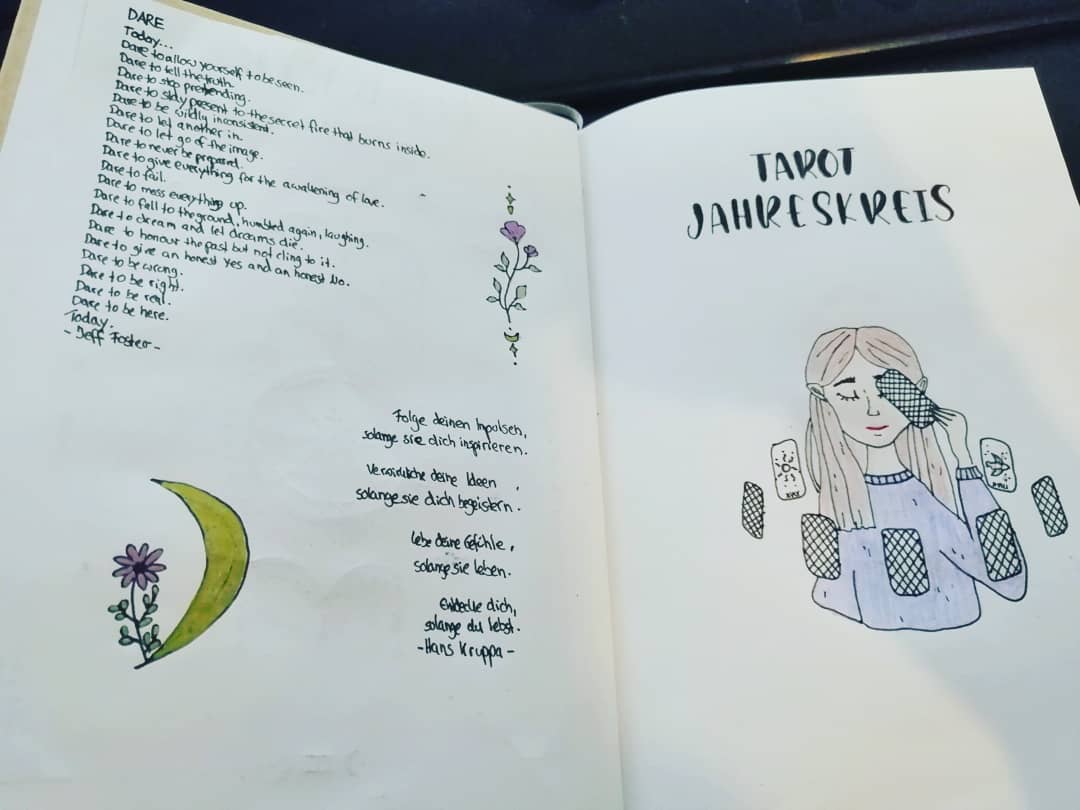 DARE
Today...
Dare to allow yourself to be seen.
Dare to tell the truth.
Dare to stop pretending.
Dare to stay present to the secret fire that burns inside.
Dare to be wildly inconsistent.
Dare to let another in.
Dare to let go of the image.
Dare to never be prepared.
Dare to give everything for the awakening of love.
Dare to fail.
Dare to mess everything up.
Dare to fall to the ground, humbled again, laughing.
Dare to dream and let dreams die.
Dare to honour the past but not cling to it.
Dare to give an honest Yes and an honest No.
Dare to be wrong.
Dare to be right.
Dare to be real.
Dare to be here.
Today.
- Jeff Foster -
Folge deinen Impulsen,
solange sie dich inspirieren.
Verwirkliche deine Ideen,
solange sie dich begeistern.
Lebe deine Gefühle,
solange sie leben.
Entdecke dich,
solange du lebst.
- Hans Kruppa -
TAROT
JAHRESKREIS